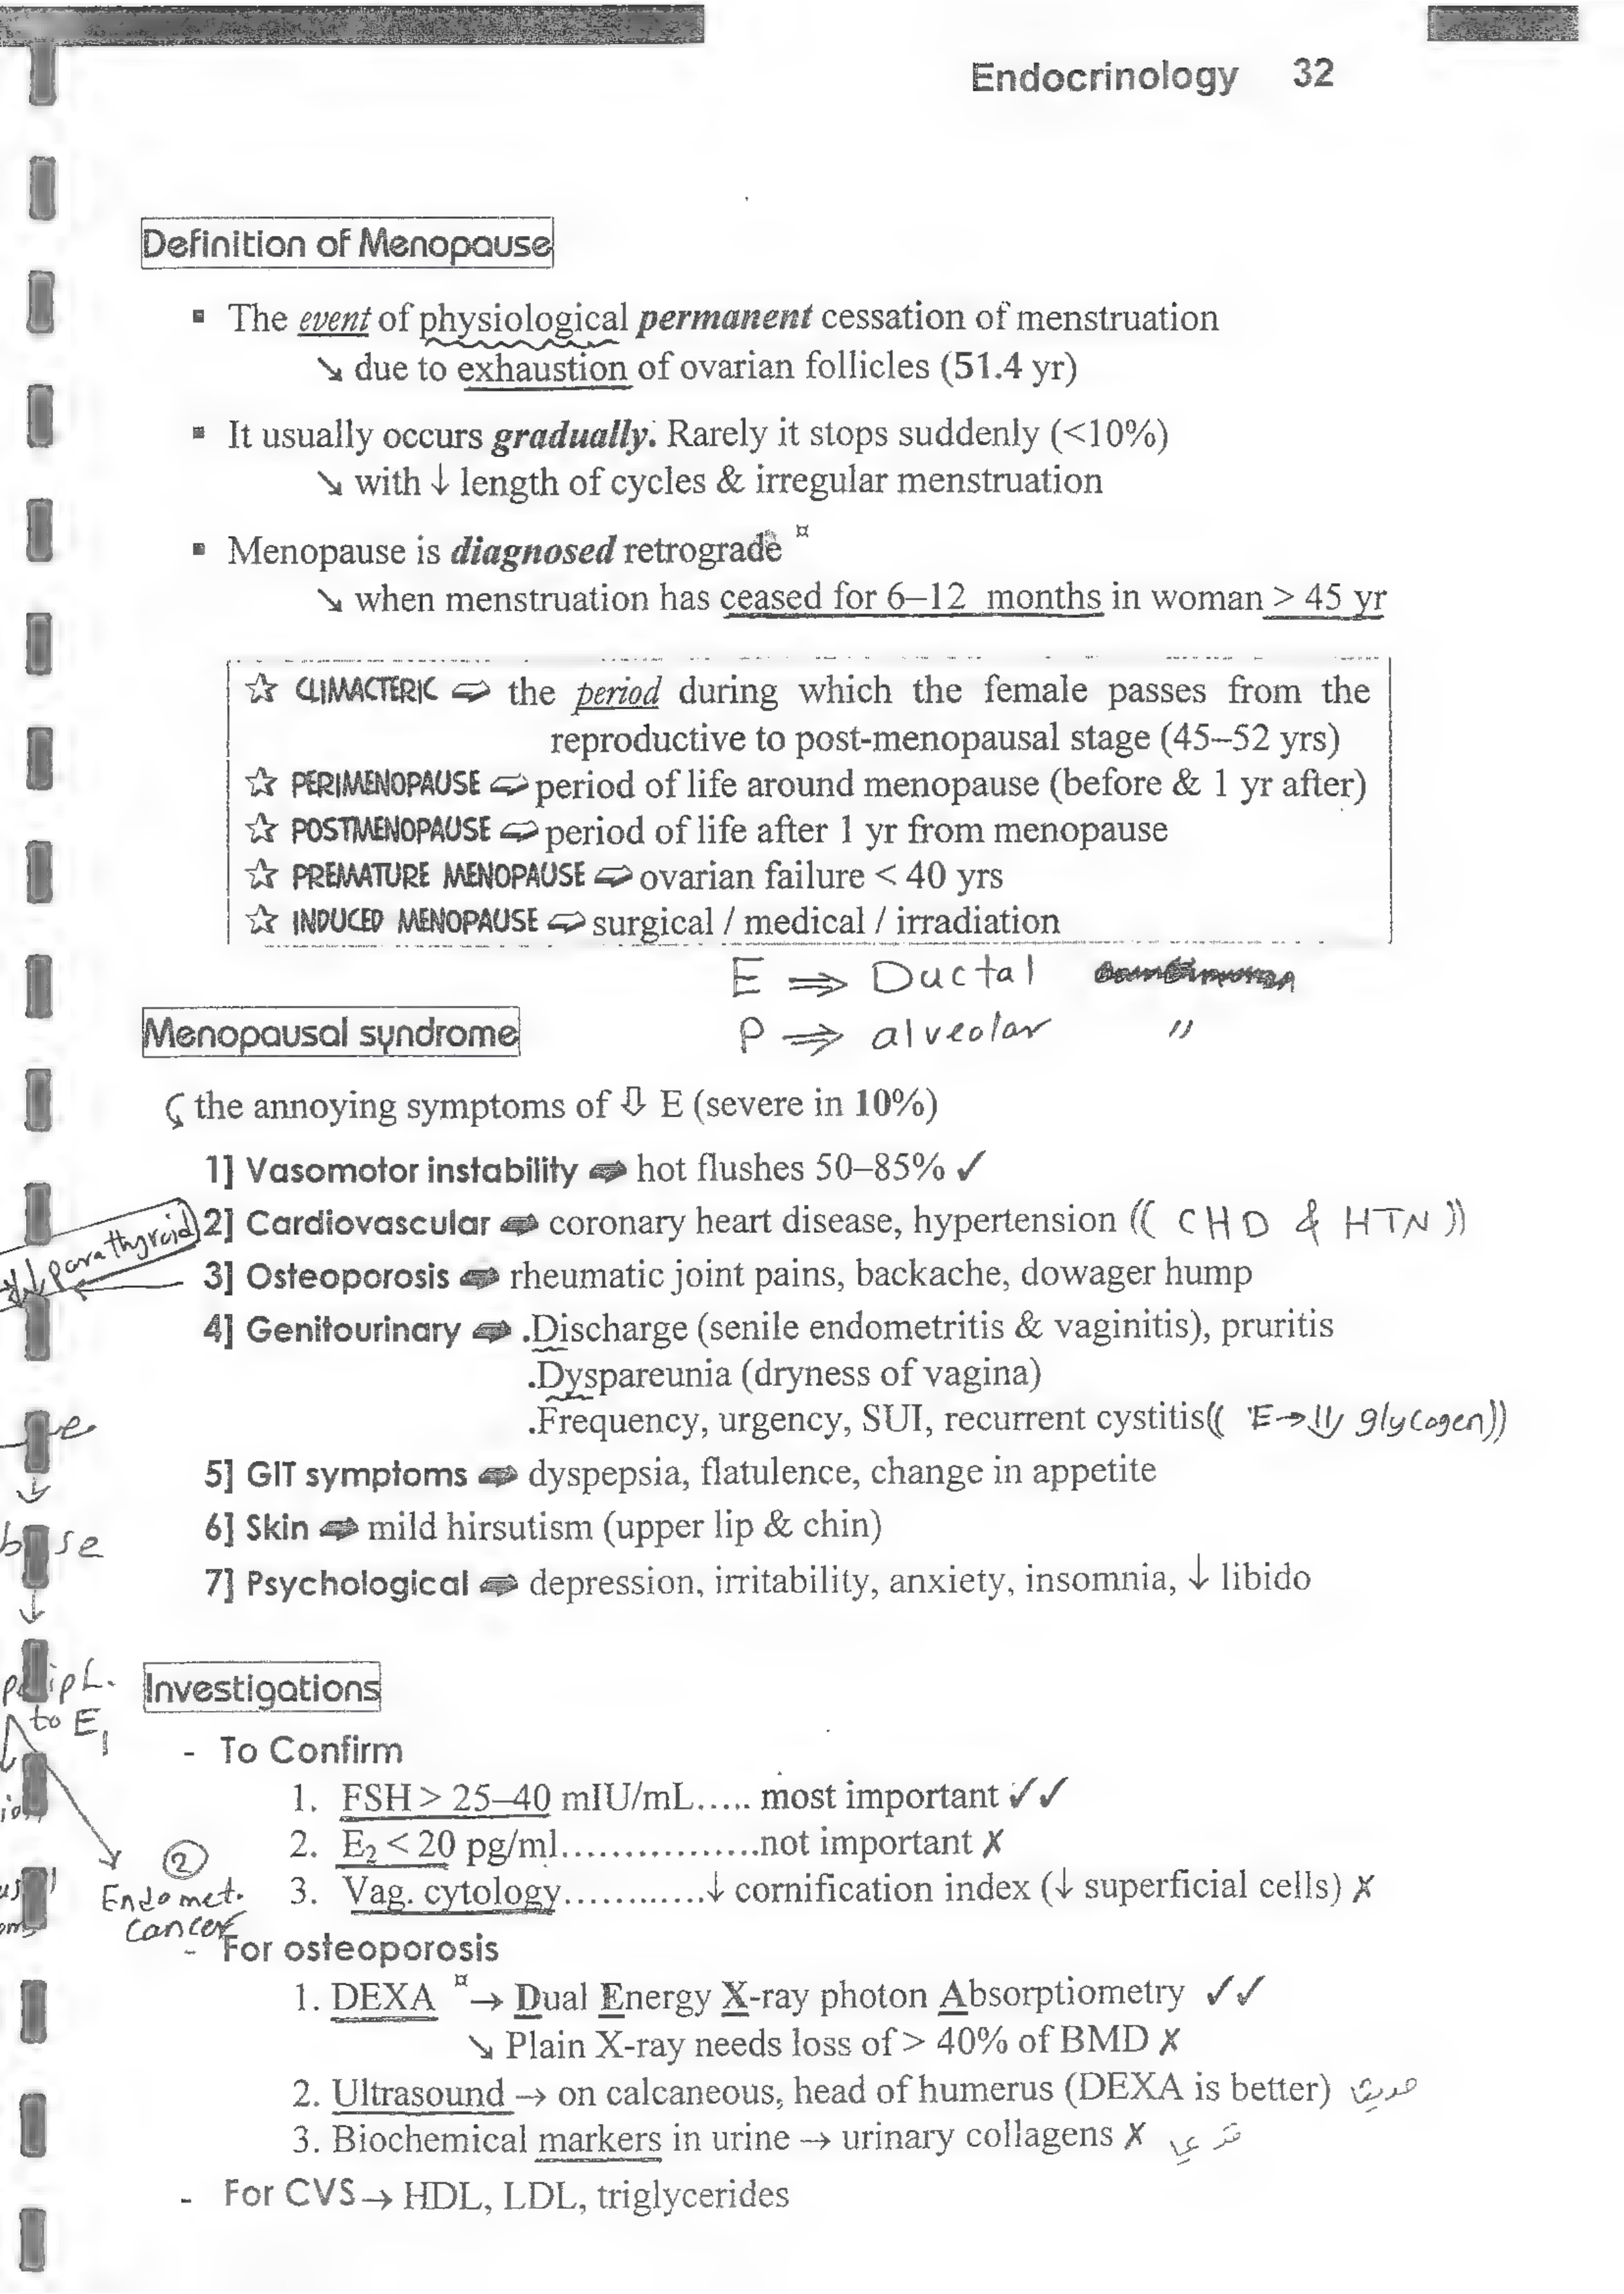 Endocrinology 32
Definition of Menopause
▪ The event of physiological permanent cessation of menstruation
↘ due to exhaustion of ovarian follicles (51.4 yr)
▪ It usually occurs gradually. Rarely it stops suddenly (<10%)
↘ with ↓ length of cycles & irregular menstruation
▪ Menopause is diagnosed retrograde ¤
↘ when menstruation has ceased for 6–12 months in woman > 45 yr
☆ CLIMACTERIC ⇨ the period during which the female passes from the
reproductive to post-menopausal stage (45–52 yrs)
☆ PERIMENOPAUSE ⇨ period of life around menopause (before & 1 yr after)
☆ POSTMENOPAUSE ⇨ period of life after 1 yr from menopause
☆ PREMATURE MENOPAUSE ⇨ ovarian failure < 40 yrs
☆ INDUCED MENOPAUSE ⇨ surgical / medical / irradiation
E ⇒ Ductal
P ⇒ alveolar "
Menopausal syndrome
the annoying symptoms of ⇩ E (severe in 10%)
1] Vasomotor instability ⇨ hot flushes 50–85% ✓
2] Cardiovascular ⇨ coronary heart disease, hypertension (( CHD & HTN ))
parathyroid
3] Osteoporosis ⇨ rheumatic joint pains, backache, dowager hump
4] Genitourinary ⇨ .Discharge (senile endometritis & vaginitis), pruritis
.Dyspareunia (dryness of vagina)
.Frequency, urgency, SUI, recurrent cystitis (( E→⇓ glycogen))
5] GIT symptoms ⇨ dyspepsia, flatulence, change in appetite
6] Skin ⇨ mild hirsutism (upper lip & chin)
7] Psychological ⇨ depression, irritability, anxiety, insomnia, ↓ libido
Investigations
to E₁
- To Confirm
1. FSH > 25–40 mIU/mL..... most important ✓✓
2. E₂ < 20 pg/ml.................not important ✗
3. Vag. cytology............↓ cornification index (↓ superficial cells) ✗
②
Endomet.
cancer
- For osteoporosis
1. DEXA ¤ → Dual Energy X-ray photon Absorptiometry ✓✓
↘ Plain X-ray needs loss of > 40% of BMD ✗
2. Ultrasound → on calcaneous, head of humerus (DEXA is better)
3. Biochemical markers in urine → urinary collagens ✗
- For CVS → HDL, LDL, triglycerides